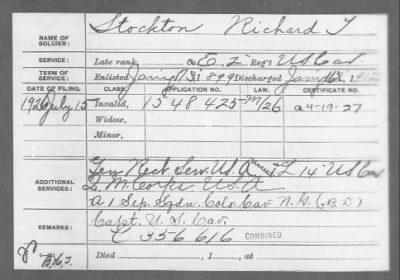 NAME OF SOLDIER: Stockton Richard T
SERVICE: Late rank, Co E, 2 Reg't US Cav
TERM OF SERVICE: Enlisted Jan 31 899 Discharged Jan
DATE OF FILING. CLASS. APPLICATION NO. LAW. CERTIFICATE NO.
1926 July 15 Invalid, 1548425 M/26 a4-19-27
Widow,
Minor,
ADDITIONAL SERVICES: Gen Rect. Serv. U.S.A. L 14" US Cav
Q. M. Corps U.S.A
A 1 Sep. Sqdn. Colo. Cav. N. G.
REMARKS: Capt. U. S. Cav.
C 356 616 COMBINED
Died , 1 , at